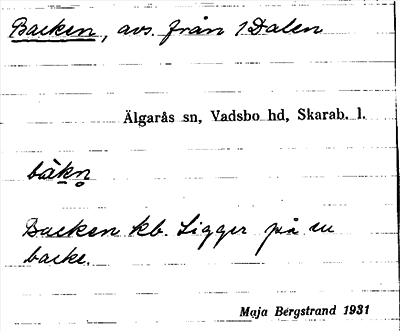 Backen, avs. från 1 Dalen
Älgarås sn, Vadsbo hd, Skarab. l.
bàkn̥
Backen kb. Ligger på en
backe.
Maja Bergstrand 1931